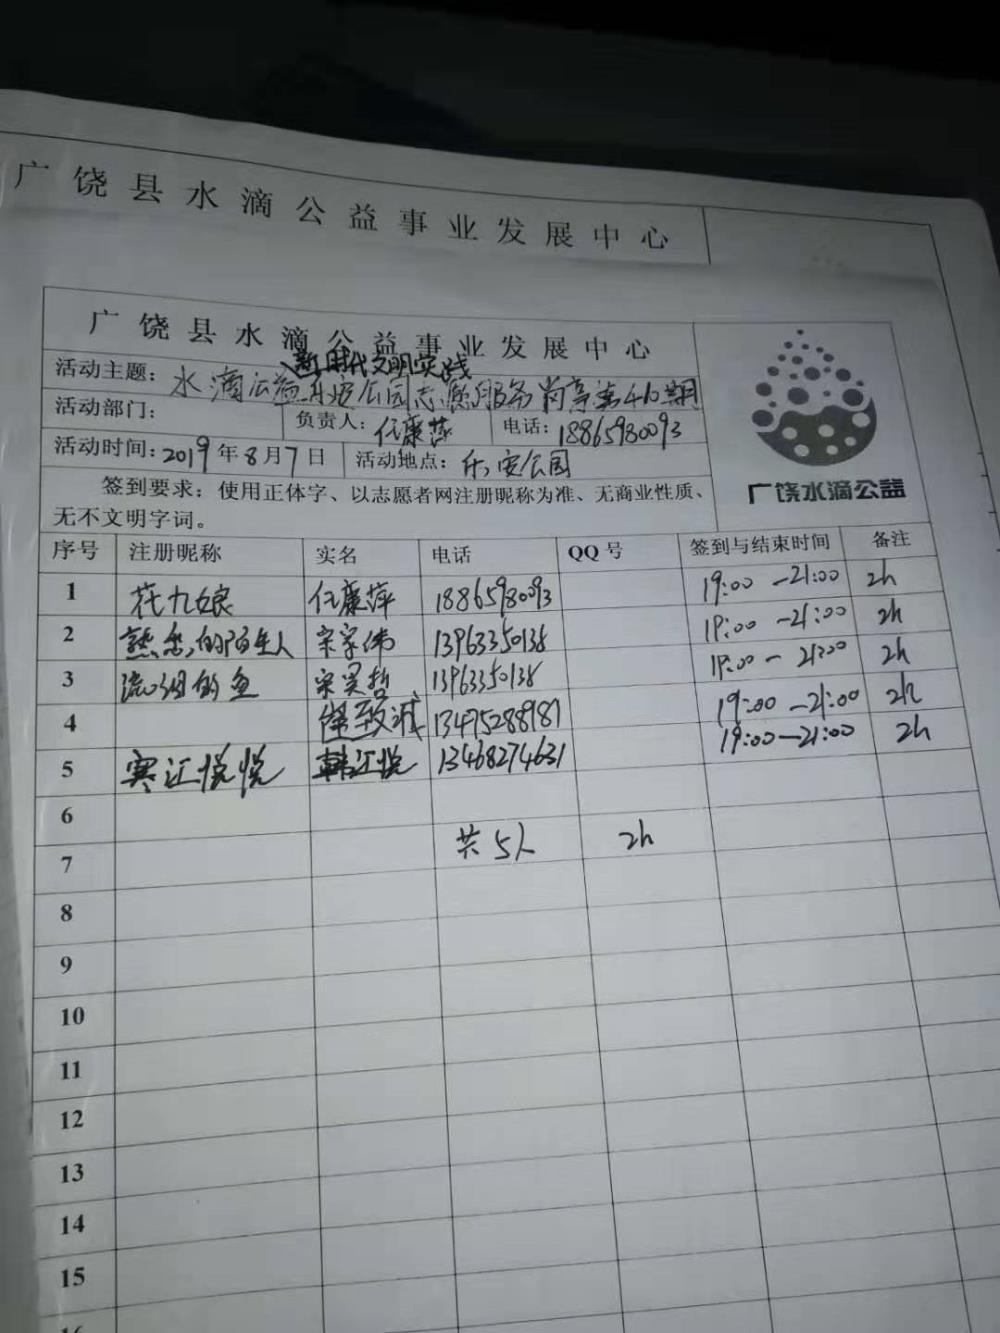 广饶县水滴公益事业发展中心
广饶县水滴公益事业发展中心
新时代文明实践
活动主题：水滴公益乐安公园志愿服务岗亭第410期
活动部门： 负责人：任康萍 电话：18865980093
活动时间：2019年8月7日 活动地点：乐安公园
广饶水滴公益
签到要求：使用正体字、以志愿者网注册昵称为准、无商业性质、
无不文明字词。
序号 注册昵称 实名 电话 QQ号 签到与结束时间 备注
1 花九娘 任康萍 18865980093 19:00-21:00 2h
2 熟悉的陌生人 宋家伟 13963350138 19:00-21:00 2h
3 流泪的鱼 宋昊哲 13963350138 19:00-21:00 2h
4 致诚 13475288987 19:00-21:00 2h
5 寒江悦悦 韩江悦 13468274631 19:00-21:00 2h
6
共5人 2h
7
8
9
10
11
12
13
14
15
16